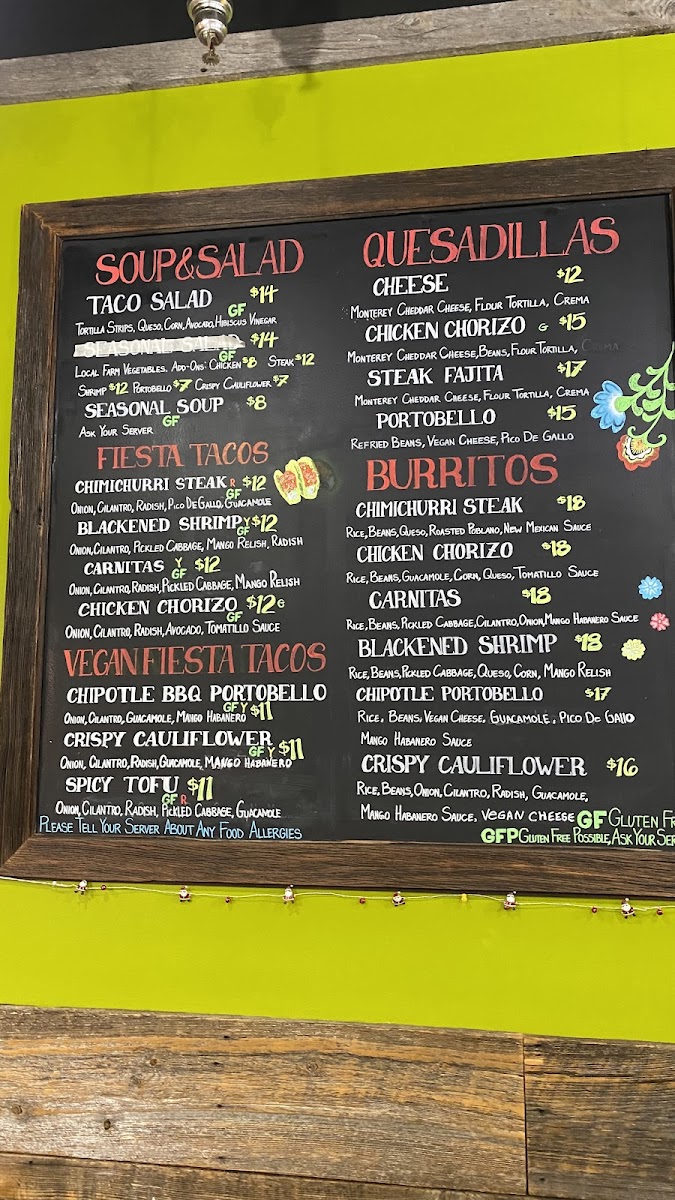 SOUP&SALAD
TACO SALAD $14
GF
Tortilla Strips, Queso, Corn, Avocado, Hibiscus Vinegar
SEASONAL SALAD $14
GF
Local Farm Vegetables. Add-Ons: Chicken $8 Steak $12
Shrimp $12 Portobello $7 Crispy Cauliflower $7
SEASONAL SOUP $8
Ask Your Server GF
FIESTA TACOS
CHIMICHURRI STEAK R $12
GF
Onion, Cilantro, Radish, Pico De Gallo, Guacamole
BLACKENED SHRIMP Y $12
GF
Onion, Cilantro, Pickled Cabbage, Mango Relish, Radish
CARNITAS Y $12
GF
Onion, Cilantro, Radish, Pickled Cabbage, Mango Relish
CHICKEN CHORIZO $12 G
GF
Onion, Cilantro, Radish, Avocado, Tomatillo Sauce
VEGAN FIESTA TACOS
CHIPOTLE BBQ PORTOBELLO
GF Y $11
Onion, Cilantro, Guacamole, Mango Habanero
CRISPY CAULIFLOWER
GF Y $11
Onion, Cilantro, Radish, Guacamole, Mango Habanero
SPICY TOFU $11
GF R
Onion, Cilantro, Radish, Pickled Cabbage, Guacamole
Please Tell Your Server About Any Food Allergies
QUESADILLAS
CHEESE $12
Monterey Cheddar Cheese, Flour Tortilla, Crema
CHICKEN CHORIZO G $15
Monterey Cheddar Cheese, Beans, Flour Tortilla, Crema
STEAK FAJITA $17
Monterey Cheddar Cheese, Flour Tortilla, Crema
PORTOBELLO $15
Refried Beans, Vegan Cheese, Pico De Gallo
BURRITOS
CHIMICHURRI STEAK $18
Rice, Beans, Queso, Roasted Poblano, New Mexican Sauce
CHICKEN CHORIZO $18
Rice, Beans, Guacamole, Corn, Queso, Tomatillo Sauce
CARNITAS $18
Rice, Beans, Pickled Cabbage, Cilantro, Onion, Mango Habanero Sauce
BLACKENED SHRIMP $18
Rice, Beans, Pickled Cabbage, Queso, Corn, Mango Relish
CHIPOTLE PORTOBELLO $17
Rice, Beans, Vegan Cheese, Guacamole, Pico De Gallo
Mango Habanero Sauce
CRISPY CAULIFLOWER $16
Rice, Beans, Onion, Cilantro, Radish, Guacamole,
Mango Habanero Sauce, Vegan Cheese GF Gluten Fr
GFP Gluten Free Possible, Ask Your Ser